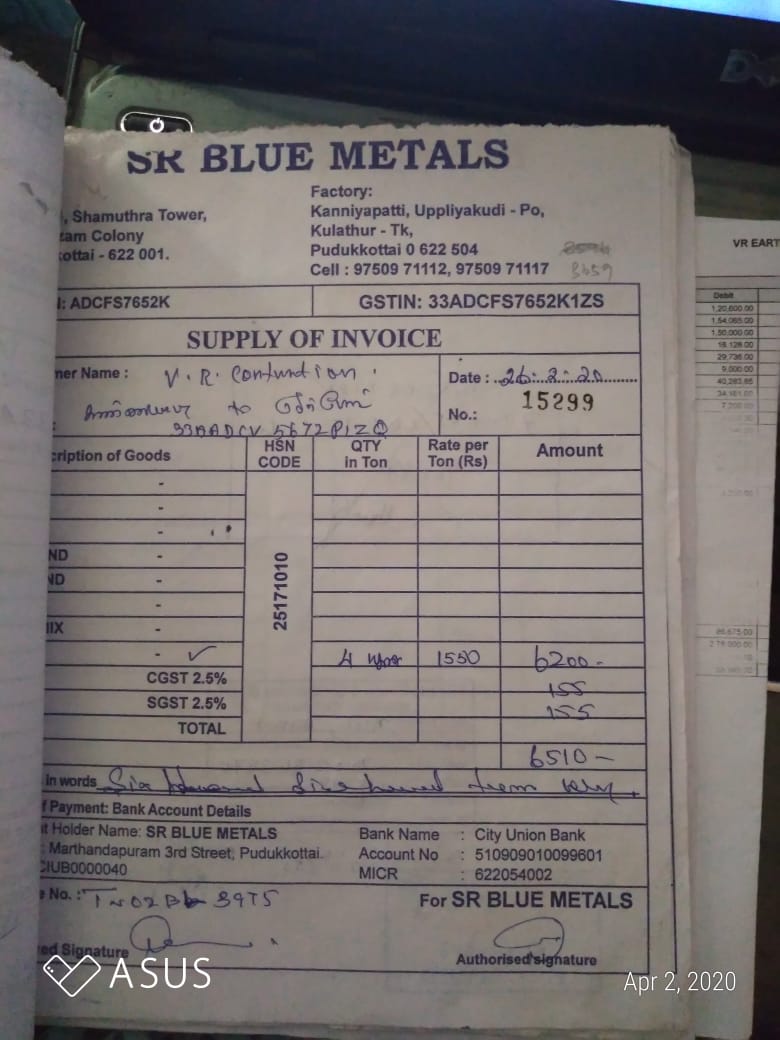 SR BLUE METALS
Factory:
, Shamuthra Tower,
Kanniyapatti, Uppliyakudi - Po,
zam Colony
Kulathur - Tk,
kottai - 622 001.
Pudukkottai 0 622 504
Cell : 97509 71112, 97509 71117
: ADCFS7652K
GSTIN: 33ADCFS7652K1ZS
SUPPLY OF INVOICE
mer Name : V.R. Contruction .
Date : 26.2.20
to
No.: 15299
33AADCV5672P1ZQ
cription of Goods
HSN CODE
QTY in Ton
Rate per Ton (Rs)
Amount
25171010
-
-
-
ND -
ND -
-
MIX -
- ✓ 4 1550 6200 -
CGST 2.5% 155
SGST 2.5% 155
TOTAL
6510 -
in words Six
f Payment: Bank Account Details
t Holder Name: SR BLUE METALS
Bank Name : City Union Bank
: Marthandapuram 3rd Street, Pudukkottai.
Account No : 510909010099601
CIUB0000040
MICR : 622054002
No. :
For SR BLUE METALS
ed Signature
Authorised signature
ASUS
Apr 2, 2020
VR EART
Debit
1,20,600.00
1,54,065.00
1,50,000.00
18,128.00
29,736.00
9,000.00